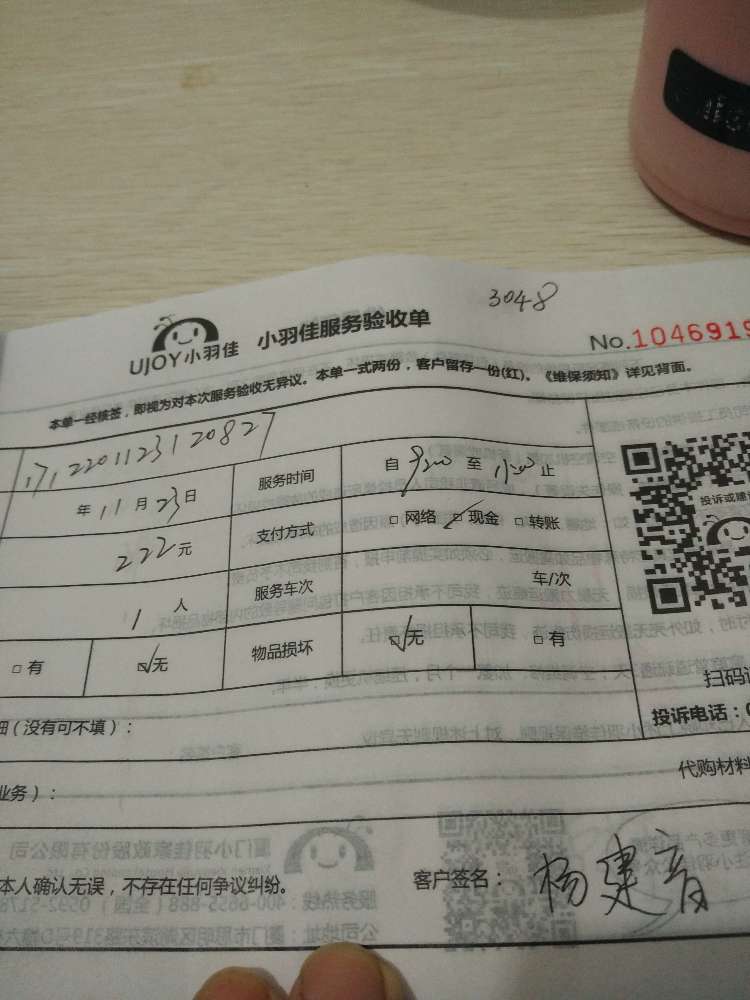 3048
UJOY小羽佳 小羽佳服务验收单
No.1046919
本单一经核签，即视为对本次服务验收无异议。本单一式两份，客户留存一份(红)。《维保须知》详见背面。
1712201123120827
年11月23日 服务时间 自 9:00 至 止
222元 支付方式 □网络 ☑现金 □转账
1人 服务车次 车/次
□有 ☑无 物品损坏 ☑无 □有
投诉或建
扫码
投诉电话：
（没有可不填）：
代购材料
业务）：
本人确认无误，不存在任何争议纠纷。
客户签名：杨建音